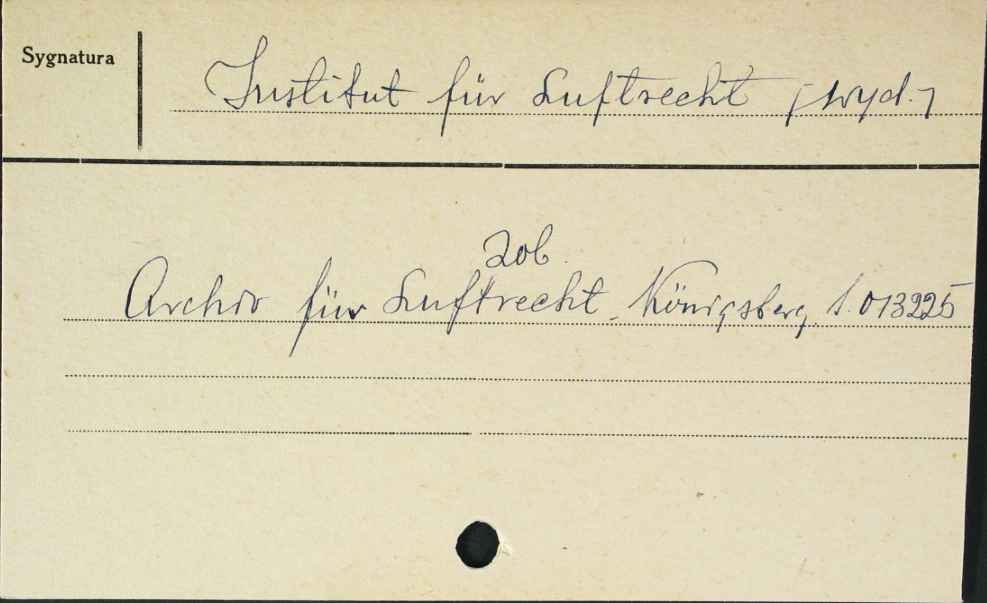 Sygnatura
Institut für Luftrecht [wyd.]
zob.
Archiv für Luftrecht. Königsberg. S. 013225